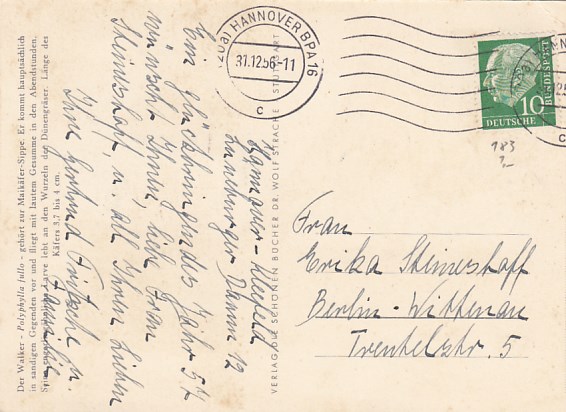 Der Walker - Polyphylla fullo - gehört zur Maikäfer-Sippe. Er kommt hauptsächlich
in sandigen Gegenden vor und fliegt mit lautem Gesumme in den Abendstunden.
Larve lebt an den Wurzeln der Dünengräser. Länge des
Käfers 3,7 bis 4 cm.
Hannover-
Lüneburger Damm 12
Ein glückbringendes Jahr 57
wünscht Ihnen, liebe Frau
u. all Ihren Lieben
Ihre u.
VERLAG DIE SCHÖNEN BÜCHER DR. WOLF STRACHE STUTTGART
(20a) HANNOVER BPA 16
31.12.56-11
c
10
DEUTSCHE
BUNDESPOST
c
183
Frau
Erika
Berlin-Wittenau
5